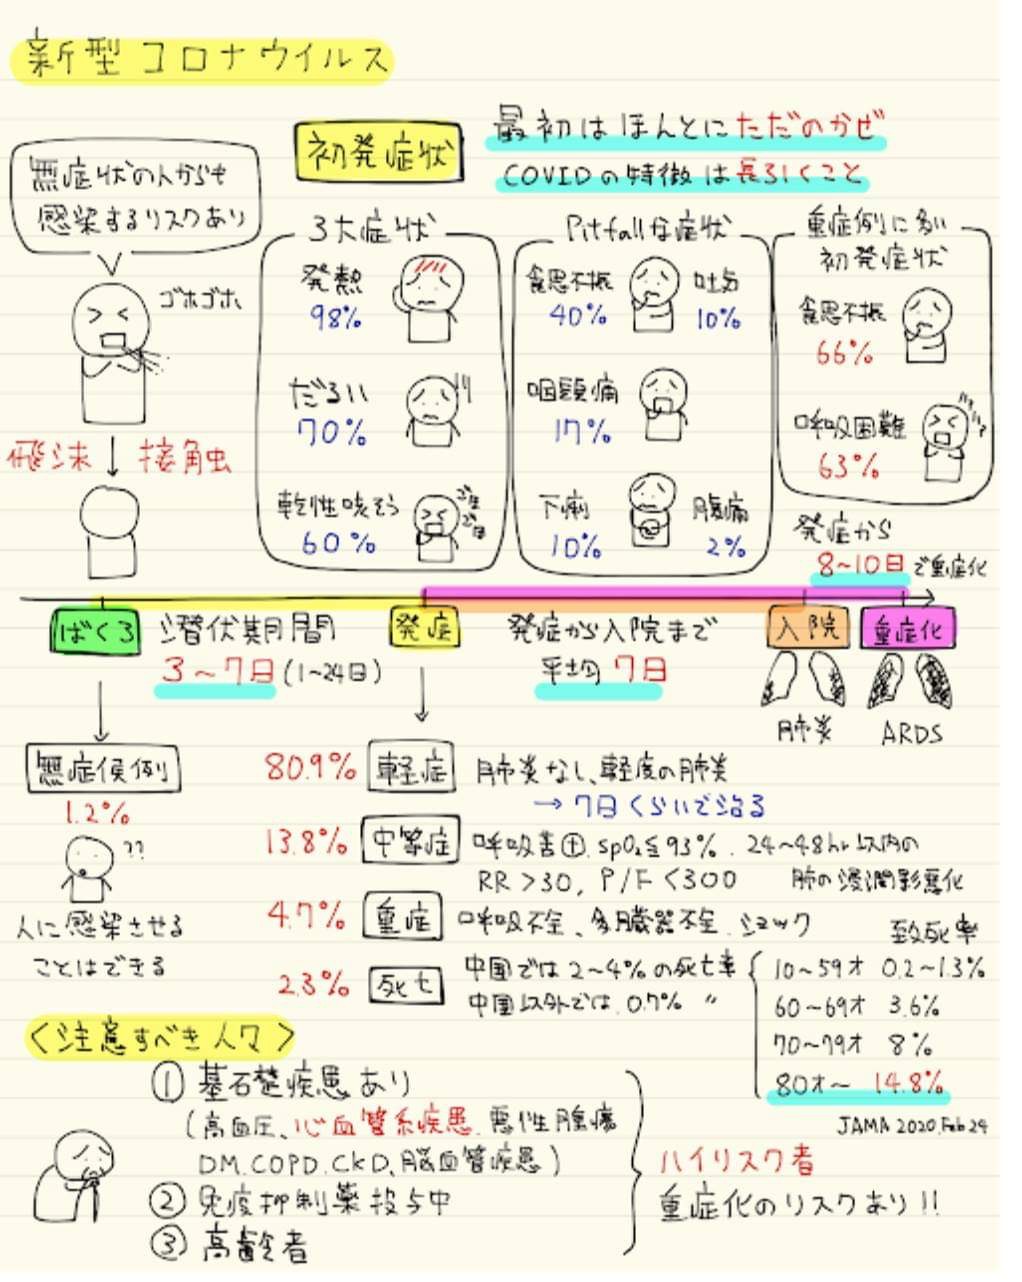 新型コロナウイルス
初発症状
最初はほんとにただのかぜ
COVIDの特徴は長引くこと
無症状の人からも
感染するリスクあり
ゴホゴホ、
飛沫
接触
3大症状
発熱
98%
だるい
70%
乾性咳そう
60%
Pitfallな症状
食思不振
40%
吐気
10%
咽頭痛
17%
下痢
10%
腹痛
2%
重症例に多い
初発症状
食思不振
66%
呼吸困難
63%
発症から
8~10日で重症化
ばくろ
潜伏期間
3~7日(1~24日)
発症
発症から入院まで
平均7日
入院
重症化
肺炎
ARDS
無症候例
1.2%
??
人に感染させる
ことはできる
80.9% 軽症 肺炎なし、軽度の肺炎
→7日くらいで治る
13.8% 中等症 呼吸苦⊕. SpO₂≦93%. 24~48hr以内の
RR>30, P/F<300 肺の浸潤影悪化
4.7% 重症 呼吸不全、多臓器不全. ショック
2.3% 死亡 中国では2~4%の死亡率
中国以外では 0.7% 〃
致死率
10~59才 0.2~1.3%
60~69才 3.6%
70~79才 8%
80才~ 14.8%
JAMA 2020.Feb 24
<注意すべき人々>
① 基礎疾患あり
(高血圧、心血管系疾患. 悪性腫瘍
DM.COPD.CKD.脳血管疾患)
② 免疫抑制薬投与中
③ 高齢者
ハイリスク者
重症化のリスクあり!!